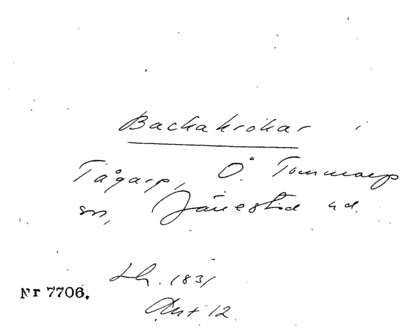 Backakrókar i
Tågarp, Ö. Tommarp
sn, Järrestad hd.
Lh. 1831
Akt 12
Nr 7706.